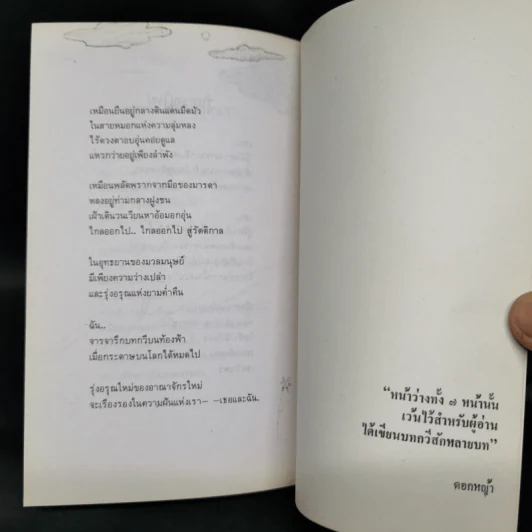 เหมือนยืนอยู่กลางดินแดนมืดมัว
ในสายหมอกแห่งความลุ่มหลง
ไร้ดวงตาอบอุ่นคอยดูแล
แหวกว่ายอยู่เพียงลำพัง
เหมือนพลัดพรากจากมือของมารดา
หลงอยู่ท่ามกลางฝูงชน
เฝ้าเดินวนเวียนหาอ้อมอกอุ่น
ไกลออกไป.. ไกลออกไป สู่รัตติกาล
ในอุทยานของมวลมนุษย์
มีเพียงความว่างเปล่า
และรุ่งอรุณแห่งยามค่ำคืน
ฉัน..
จารจารึกบทกวีบนท้องฟ้า
เมื่อกระดาษบนโลกได้หมดไป
รุ่งอรุณใหม่ของอาณาจักรใหม่
จะเรืองรองในความฝันแห่งเรา- -เธอและฉัน.
“หน้าว่างทั้ง ๗ หน้านั้น
เว้นไว้สำหรับผู้อ่าน
ได้เขียนบทกวีสักหลายบท”
ดอกหญ้า